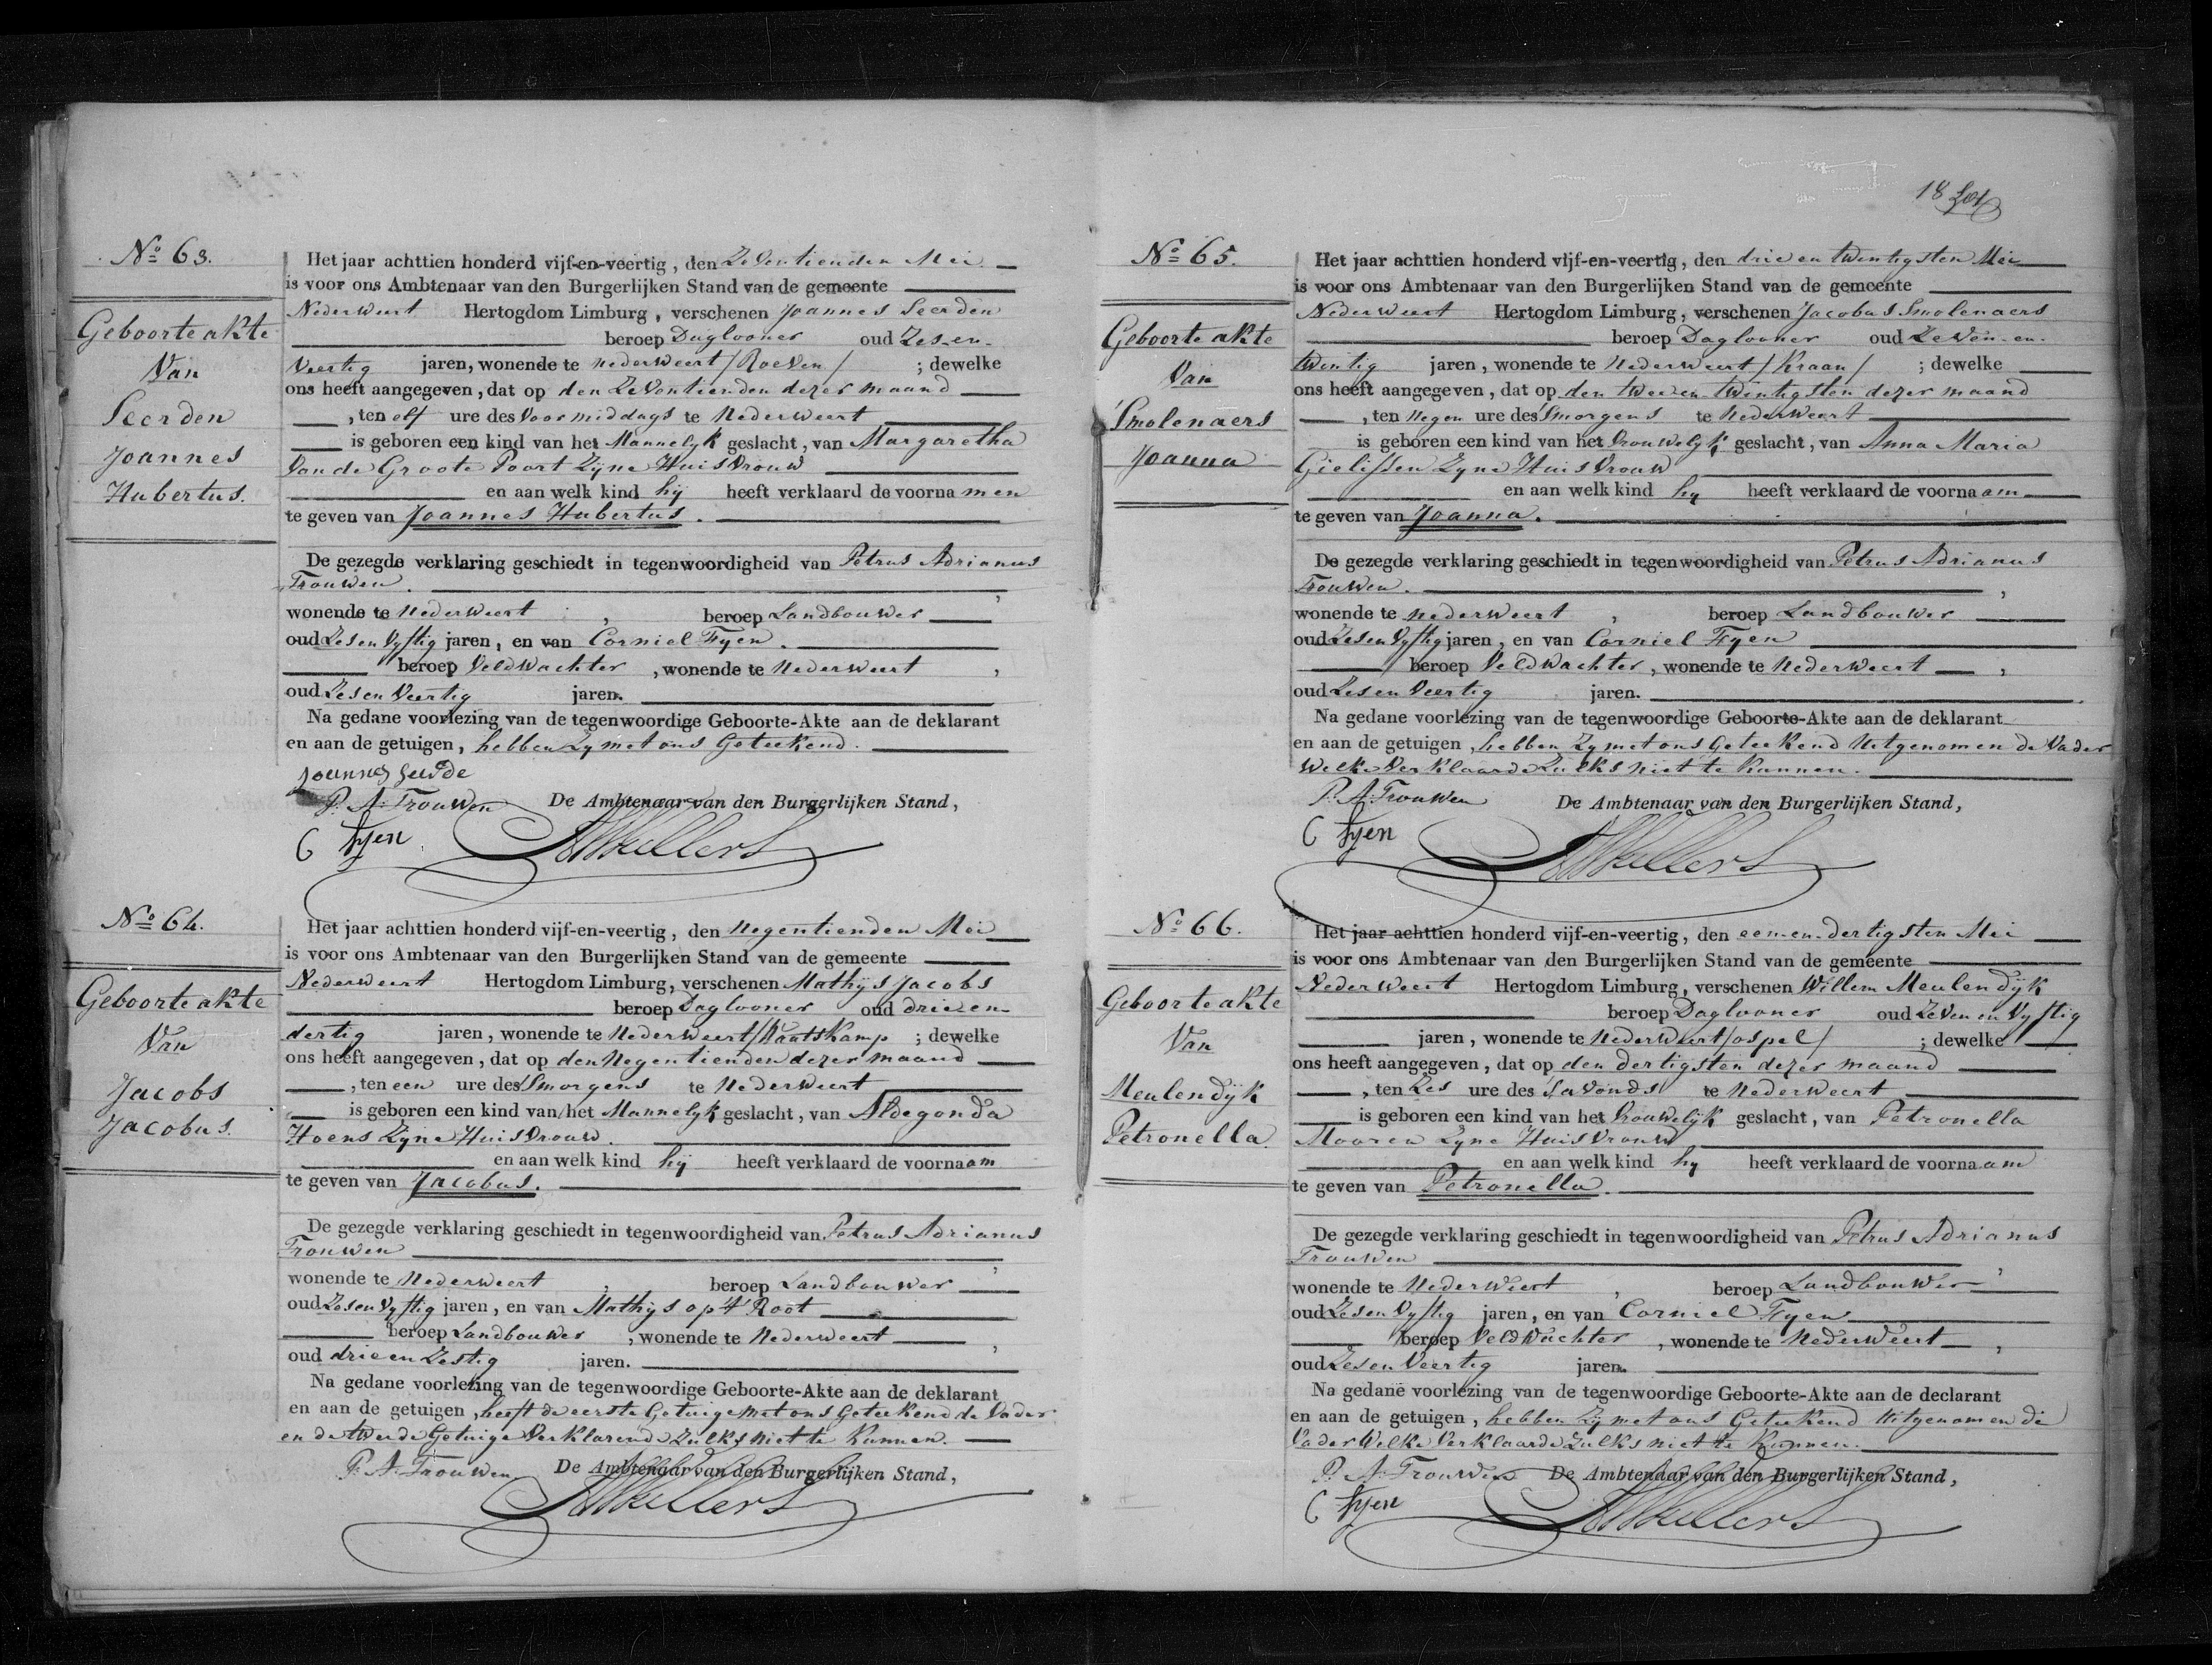 No 63.
Geboorte akte
Van
Seerden
Joannes
Hubertus.
Het jaar achttien honderd vijf-en-veertig, den Zeventienden Mei
is voor ons Ambtenaar van den Burgerlijken Stand van de gemeente
Nederweert Hertogdom Limburg, verschenen Joannes Seerden
beroep Daglooner oud Zes-en-
Veertig jaren, wonende te Nederweert /Roeven/ ; dewelke
ons heeft aangegeven, dat op den Zeventienden dezer maand
, ten elf ure des Voormiddags te Nederweert
is geboren een kind van het Mannelyk geslacht, van Margaretha
Van de Groote Poort Zyne Huisvrouw
en aan welk kind hij heeft verklaard de voornamen
te geven van Joannes Hubertus.
De gezegde verklaring geschiedt in tegenwoordigheid van Petrus Adrianus
Trouwen.
wonende te Nederweert , beroep Landbouwer
oud Zes en Vyftig jaren, en van Corniel Fyen.
beroep Veldwachter , wonende te Nederweert ,
oud Zes en Veertig jaren.
Na gedane voorlezing van de tegenwoordige Geboorte-Akte aan de deklarant
en aan de getuigen, hebben Zy met ons Geteekend.
P. A. Trouwen De Ambtenaar van den Burgerlijken Stand,
C Fyen
No 64.
Geboorte akte
Van
Jacobs
Jacobus.
Het jaar achttien honderd vijf-en-veertig, den Negentienden Mei
is voor ons Ambtenaar van den Burgerlijken Stand van de gemeente
Nederweert Hertogdom Limburg, verschenen Mathijs Jacobs
beroep Daglooner oud drie en-
dertig jaren, wonende te Nederweert /Waatskamp ; dewelke
ons heeft aangegeven, dat op den Negentienden dezer maand
, ten een ure des Smorgens te Nederweert
is geboren een kind van het Mannelyk geslacht, van Aldegonda
Hoens Zyne Huisvrouw.
en aan welk kind hij heeft verklaard de voornaam
te geven van Jacobus.
De gezegde verklaring geschiedt in tegenwoordigheid van Petrus Adrianus
Trouwen
wonende te Nederweert , beroep Landbouwer
oud Zes en Vyftig jaren, en van Mathijs op 't Root
beroep Landbouwer , wonende te Nederweert ,
oud drie en Zestig jaren.
Na gedane voorlezing van de tegenwoordige Geboorte-Akte aan de deklarant
en aan de getuigen, heeft de eerste Getuige met ons Geteekend de Vader
en de tweede Getuige Verklarende Zulks niet te Kunnen.
P. A. Trouwen De Ambtenaar van den Burgerlijken Stand,
18
No 65.
Geboorte akte
Van
Smolenaers
Joanna
Het jaar achttien honderd vijf-en-veertig, den drie en twintigsten Mei
is voor ons Ambtenaar van den Burgerlijken Stand van de gemeente
Nederweert Hertogdom Limburg, verschenen Jacobus Smolenaers
beroep Daglooner oud Zeven-en-
twintig jaren, wonende te Nederweert /Kraan/ ; dewelke
ons heeft aangegeven, dat op den twee en twintigsten dezer maand
, ten Negen ure des Smorgens te Nederweert
is geboren een kind van het Vrouwelyk geslacht, van Anna Maria
Gielissen Zyne Huisvrouw
en aan welk kind hy heeft verklaard de voornaam
te geven van Joanna.
De gezegde verklaring geschiedt in tegenwoordigheid van Petrus Adrianus
Trouwen.
wonende te Nederweert , beroep Landbouwer
oud Zes en Vyftig jaren, en van Corniel Fyen
beroep Veldwachter, wonende te Nederweert ,
oud Zes en Veertig jaren.
Na gedane voorlezing van de tegenwoordige Geboorte-Akte aan de deklarant
en aan de getuigen, hebben Zy met ons Geteekend Uitgenomen de Vader
Welke Verklaarde Zulks niet te Kunnen.
P. A. Trouwen De Ambtenaar van den Burgerlijken Stand,
C Fyen
No 66.
Geboorte akte
Van
Meulendijk
Petronella.
Het jaar achttien honderd vijf-en-veertig, den een-en-dertigsten Mei
is voor ons Ambtenaar van den Burgerlijken Stand van de gemeente
Nederweert Hertogdom Limburg, verschenen Willem Meulendijk
beroep Daglooner oud Zeven en Vyftig
jaren, wonende te Nederweert /ospel/ ; dewelke
ons heeft aangegeven, dat op den dertigsten dezer maand
, ten Zes ure des Savonds te Nederweert
is geboren een kind van het Vrouwelijk geslacht, van Petronella
Mooren Zyne Huisvrouw
en aan welk kind hy heeft verklaard de voornaam
te geven van Petronella.
De gezegde verklaring geschiedt in tegenwoordigheid van Petrus Adrianus
Trouwen
wonende te Nederweert , beroep Landbouwer
oud Zes en Vyftig jaren, en van Corniel Fyen
beroep Veldwachter , wonende te Nederweert ,
oud Zes en Veertig jaren.
Na gedane voorlezing van de tegenwoordige Geboorte-Akte aan de declarant
en aan de getuigen, hebben Zy met ons Geteekend Uitgenomen de
Vader Welke Verklaarde Zulks niet te Kunnen.
P. A. Trouwen De Ambtenaar van den Burgerlijken Stand,
C Fyen